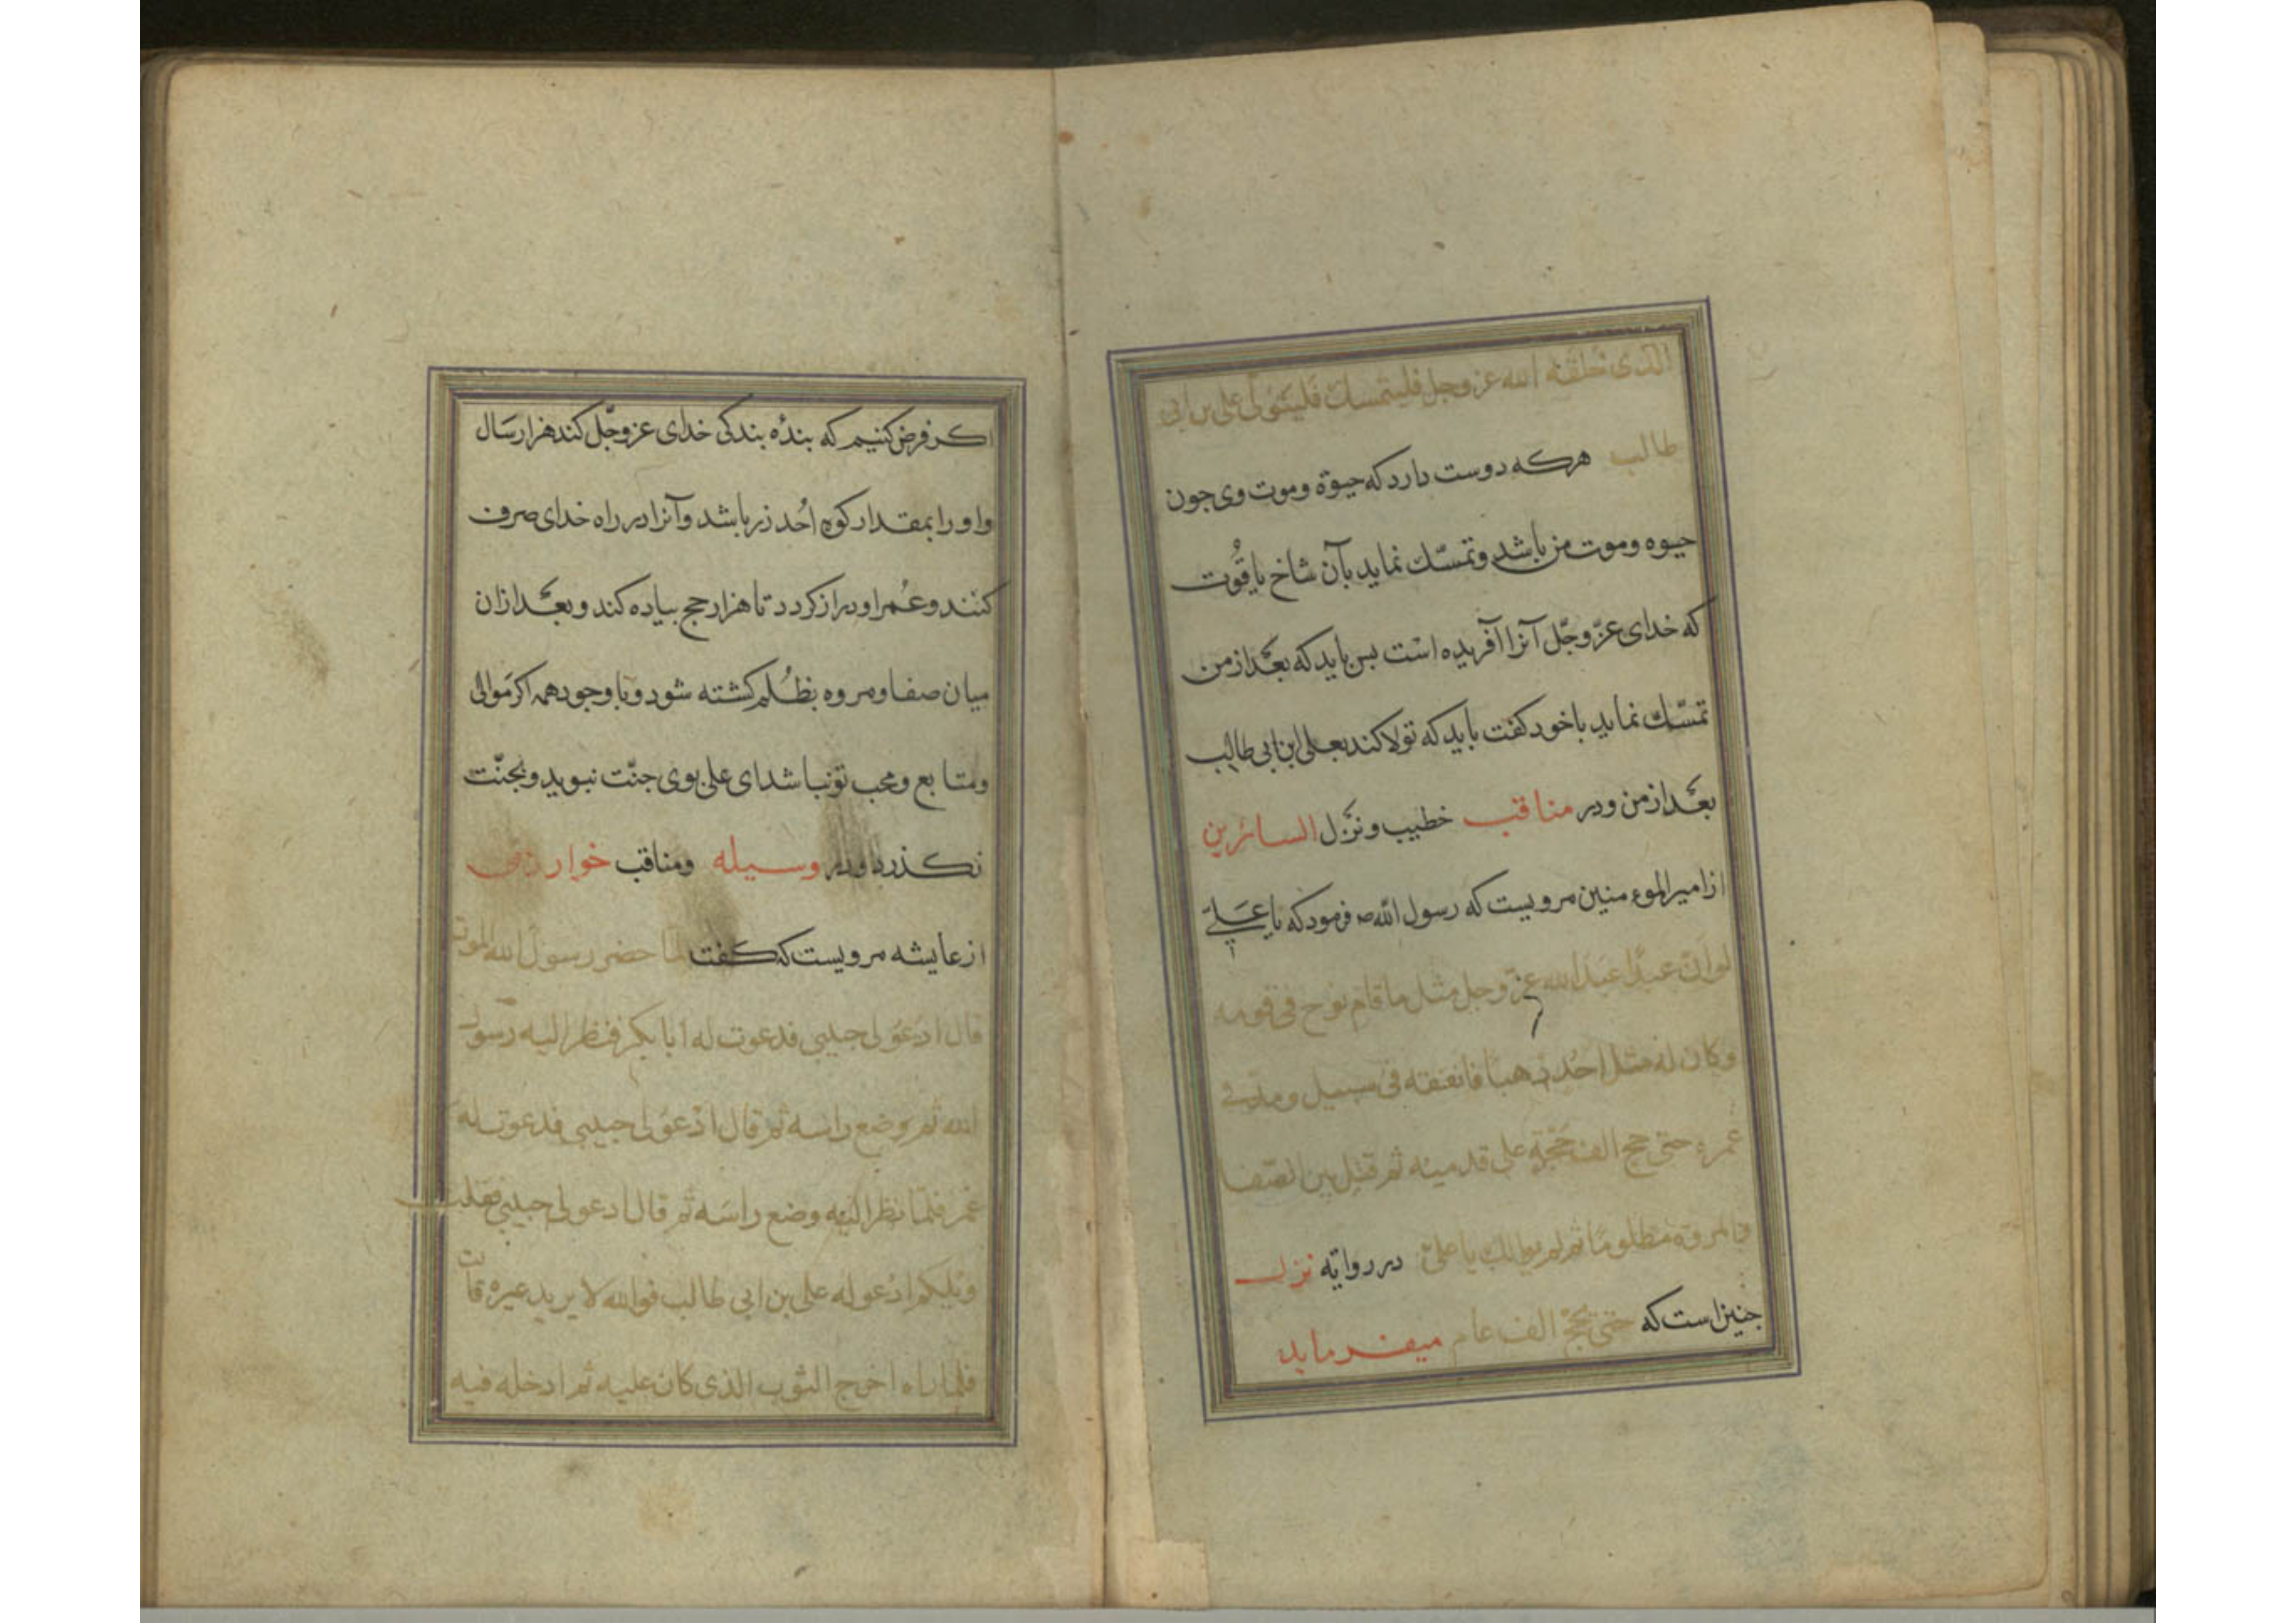 الذی خلقه الله عز وجل فلیتمسك فلیتولّ علی بن ابی
طالب هرکه دوست دارد که حیوة وموت وی جون
حیوه وموت من باشد وتمسّك نماید بآن شاخ یاقُوت
که خدای عزّ وجّل آنرا آفریده است بس باید که بعَد ازمن
تمسّك نماید باخود کفت باید که تولا کند بعلی ابن ابی طالب
بعَد ازمن ودر مناقب خطیب ونزل السائرین
از امیر الموءمنین مرویست که رسول الله ص فرمود که یا عَلیّ
لو انّ عبدًا عبد الله عزّ وجل مثل ما قام نوح فی قومه
وکان له مثل احُد ذهبًا فانفقه فی سبیل ومدّ فی
عمره حتی حج الف حَجّةٍ علی قدمیه ثم قتل بین الصّفا
والمروة مظلومًا ثم لم یوالك یا علیّ در روایة نزل
جنین است که حتی یحجّ الف عام میفرماید
اکر فرض کنیم که بندٔه بندکی خدای عز وجّل کند هزار سَال
واو را بمقدار کوه اُحد زر باشد وآنرا در راه خدای صرف
کنند وعُمر او دراز کردد تا هزار حج بیاده کند وبعَد ازان
میان صفا ومروه بظُلم کشته شود وبا وجود همه اکر مَوالی
ومتابع ومحب تو نباشد ای علی بوی جنّت نبوید وبجنّت
نکذرد ودر وسیله ومناقب خوارزمی
از عایشه مرویست که کفت لمّا حضر رسول الله الموت
قال ادعو لی حبیبی فدعوت له ابا بکر فنظر الیه رسول
الله ثم وضع راسه ثم قال ادعو لی حبیبی فدعوت له
عمر فلمّا نظر الیه وضع راسَه ثم قال ادعو لی حبیبی فقلت
ویلکم ادعو له علی بن ابی طالب فوالله لا یرید غیره قات
فلما راه اخرج الثوب الذی کان علیه ثم ادخله فیه